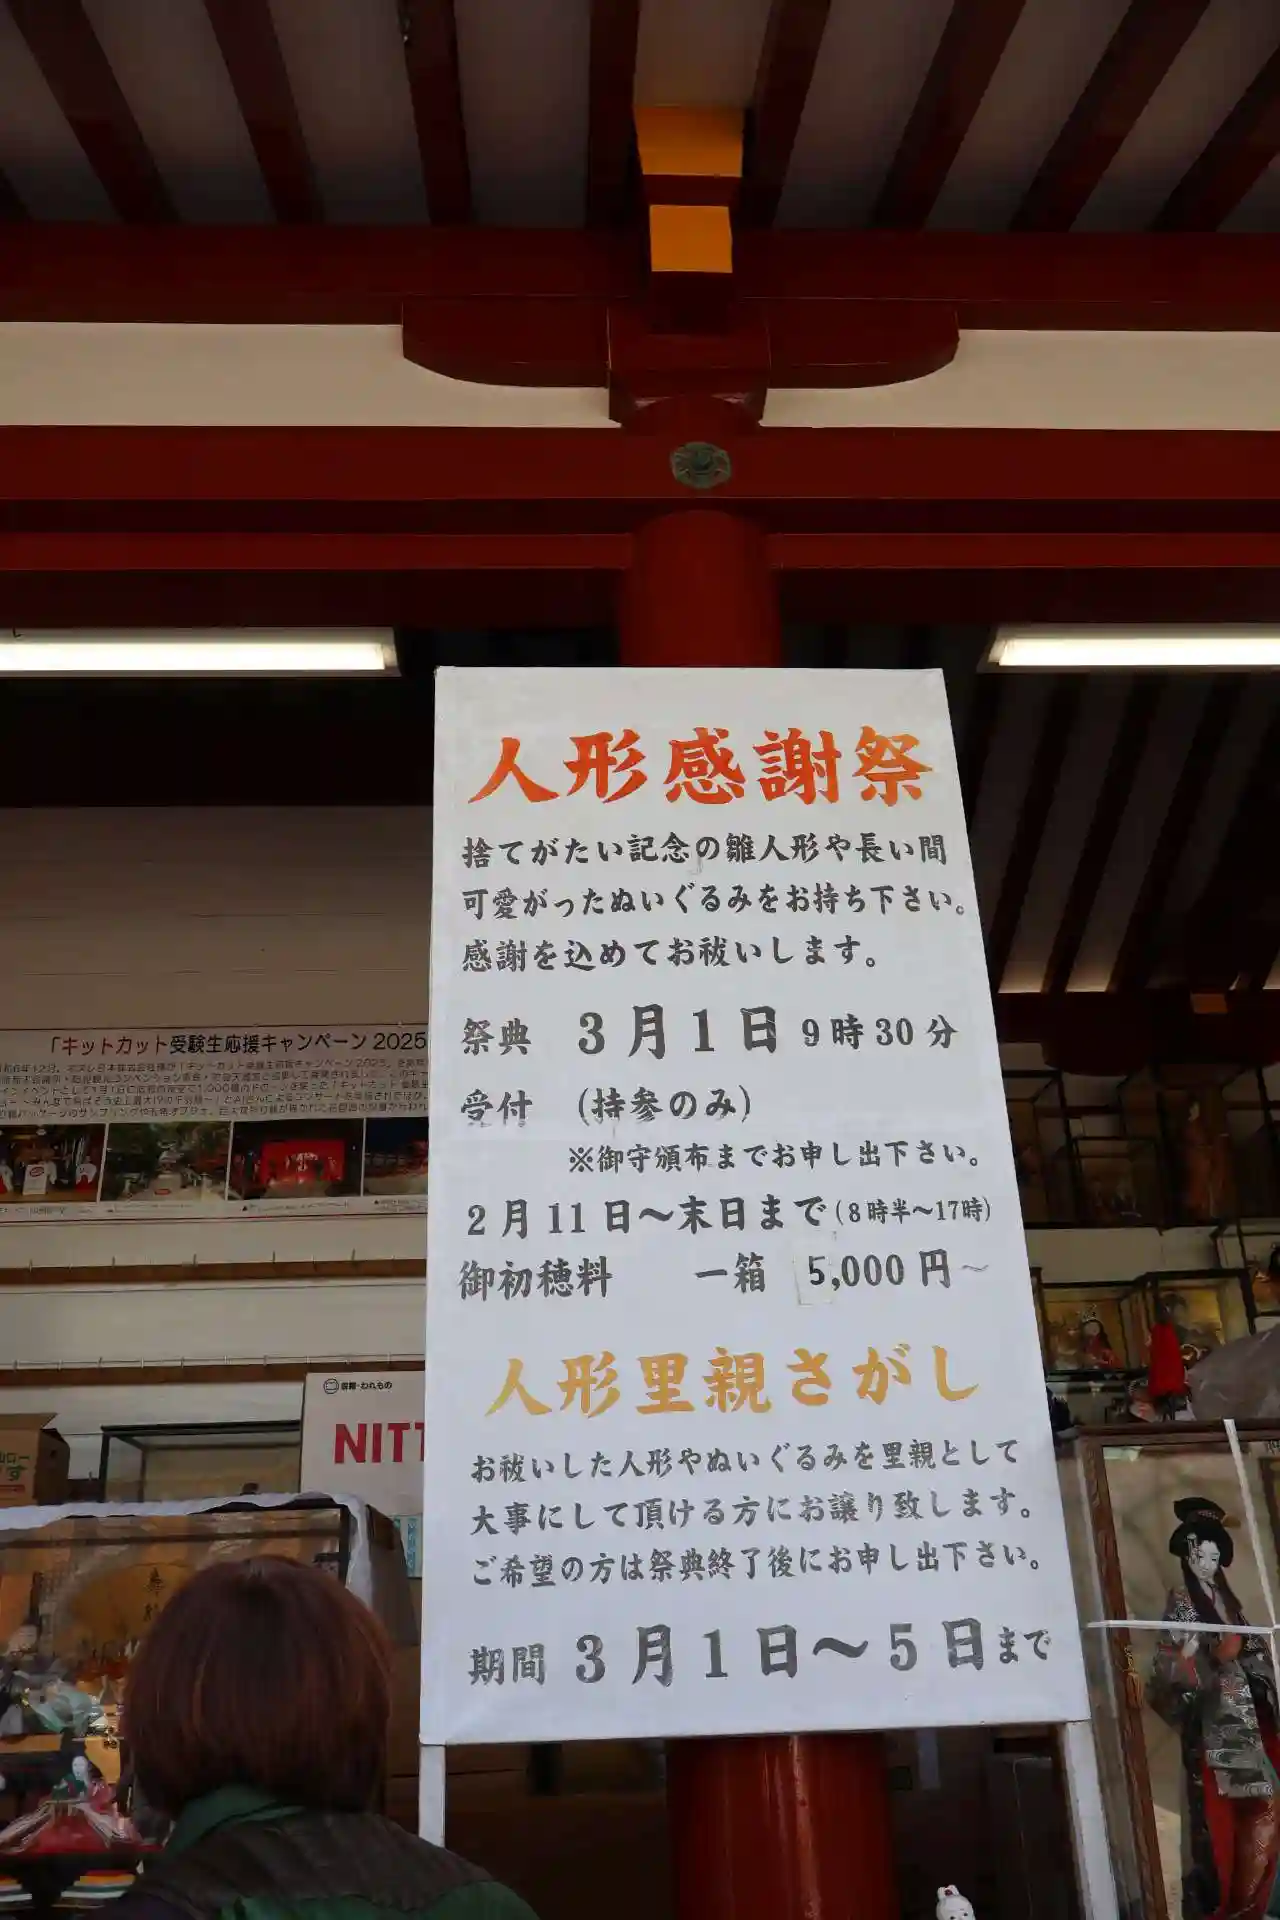 人形感謝祭
捨てがたい記念の雛人形や長い間
可愛がったぬいぐるみをお持ち下さい。
感謝を込めてお祓いします。
祭典 3月1日 9時30分
受付 (持参のみ)
※御守頒布までお申し出下さい。
2月11日～末日まで(8時半～17時)
御初穂料 一箱 5,000円～
人形里親さがし
お祓いした人形やぬいぐるみを里親として
大事にして頂ける方にお譲り致します。
ご希望の方は祭典終了後にお申し出下さい。
期間 3月1日～5日まで
「キットカット受験生応援キャンペーン2025
NITT